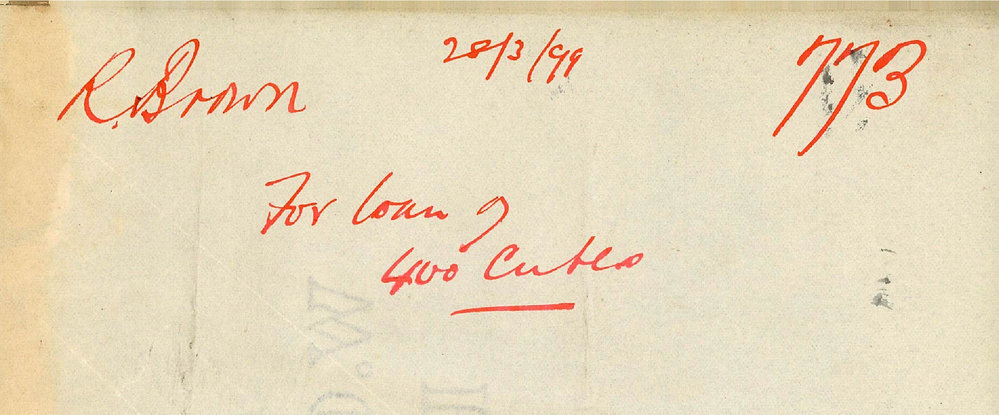 R. Brown 28/3/99 773
For loan of
400 Cubes